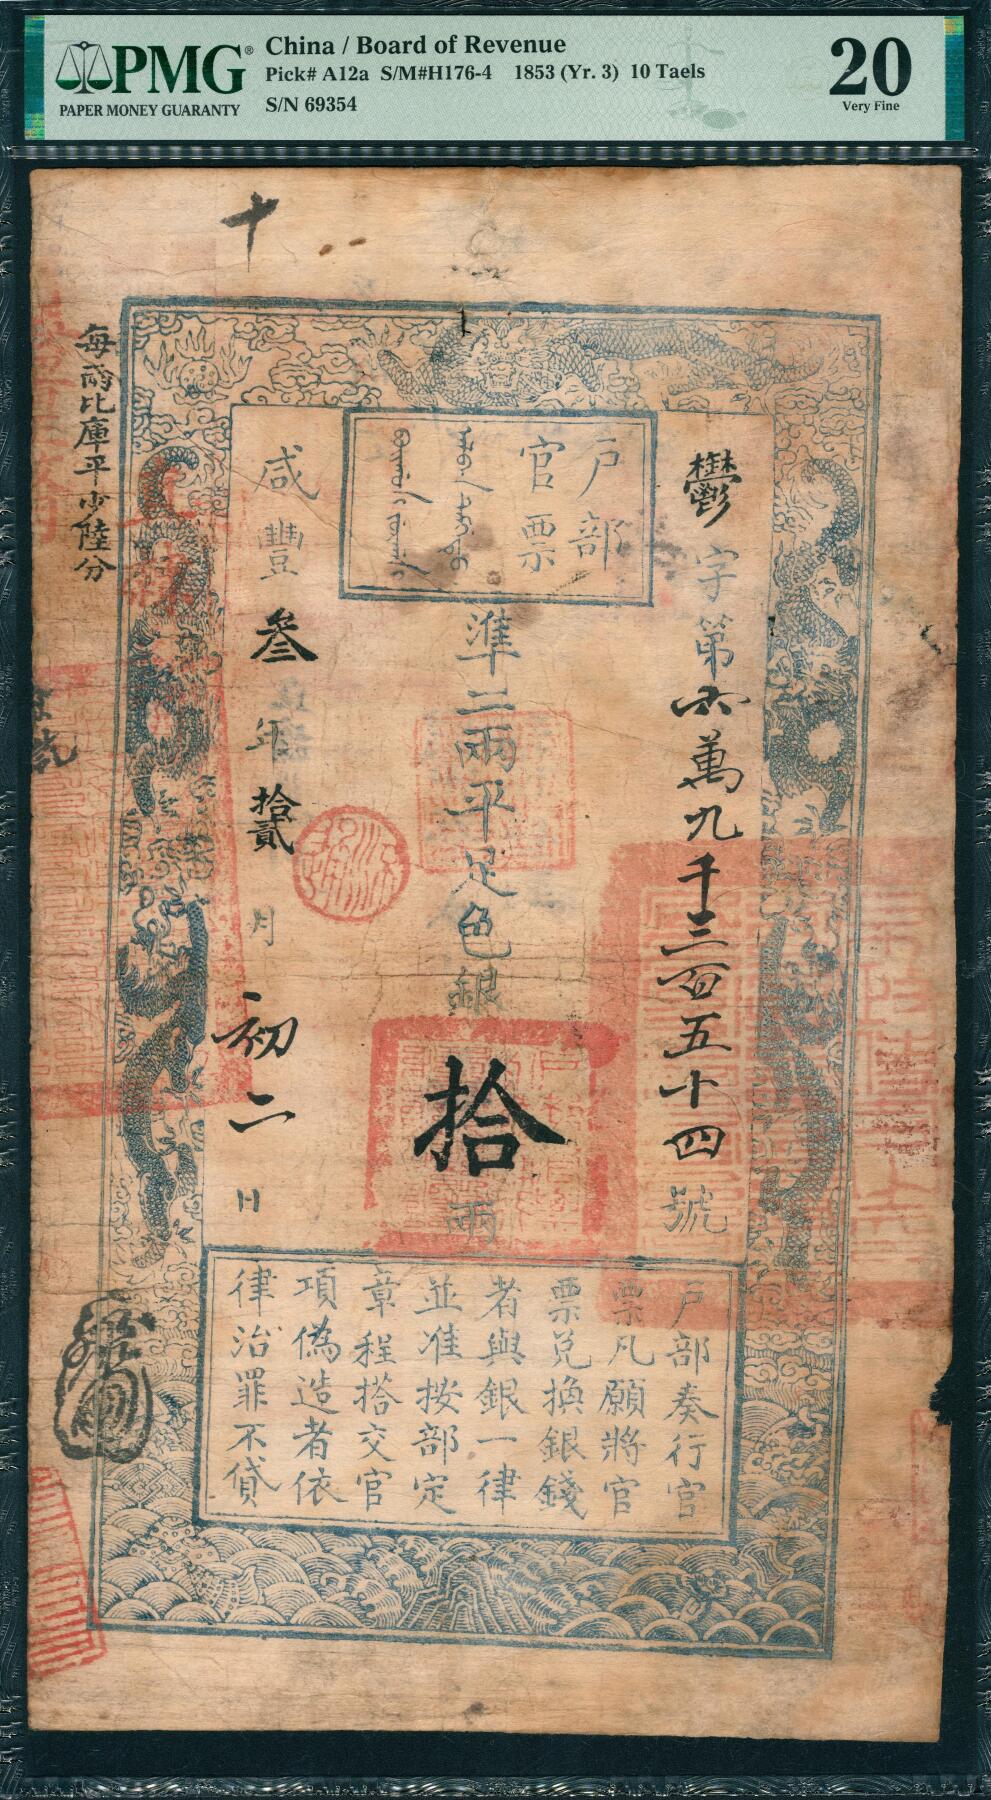 PMG®
PAPER MONEY GUARANTY
China / Board of Revenue
Pick# A12a S/M#H176-4 1853 (Yr. 3) 10 Taels
S/N 69354
20
Very Fine
十
戶部
官票
鬱字第六萬九千三百五十四號
準二兩平足色銀拾兩
咸豐叁年拾貳月初二日
每兩比庫平少陸分
戶部奏行官
票凡願將官
票兌換銀錢
者與銀一律
並准按部定
章程搭交官
項偽造者依
律治罪不貸